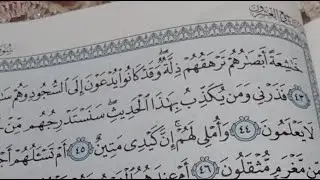 خَٰشِعَةً أَبْصَٰرُهُمْ تَرْهَقُهُمْ ذِلَّةٌ ۖ وَقَدْ كَانُوا۟ يُدْعَوْنَ إِلَى ٱلسُّجُودِ وَهُمْ
٤٣ فَذَرْنِى وَمَن يُكَذِّبُ بِهَٰذَا ٱلْحَدِيثِ ۖ سَنَسْتَدْرِجُهُم مِّنْ
لَا يَعْلَمُونَ ٤٤ وَأُمْلِى لَهُمْ ۚ إِنَّ كَيْدِى مَتِينٌ ٤٥ أَمْ تَسْـَٔلُهُمْ
مِّن مَّغْرَمٍ مُّثْقَلُونَ ٤٦ أَمْ عِندَهُمُ